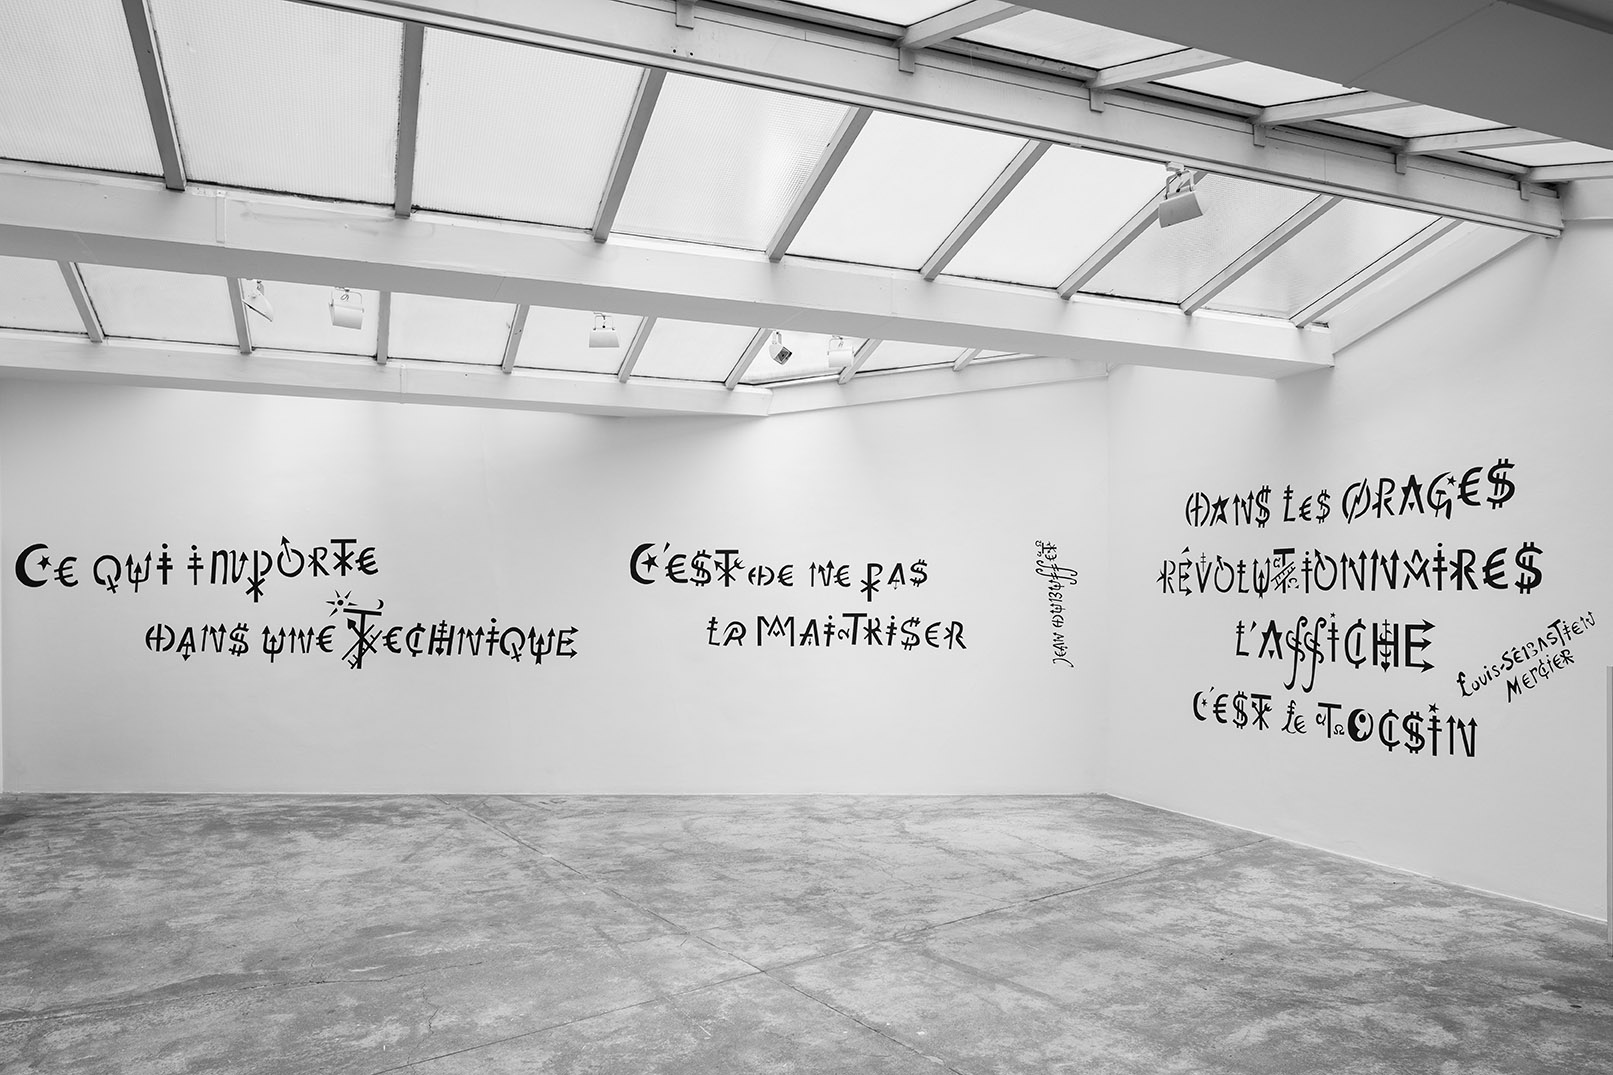 CE QUI IMPORTE
DANS UNE TECHNIQUE
C'EST DE NE PAS
LA MAITRISER
JEAN DUBUFFET
DANS LES ORAGES
RÉVOLUTIONNAIRES
L'AFFICHE
C'EST LE TOCSIN
LOUIS-SÉBASTIEN
MERCIER